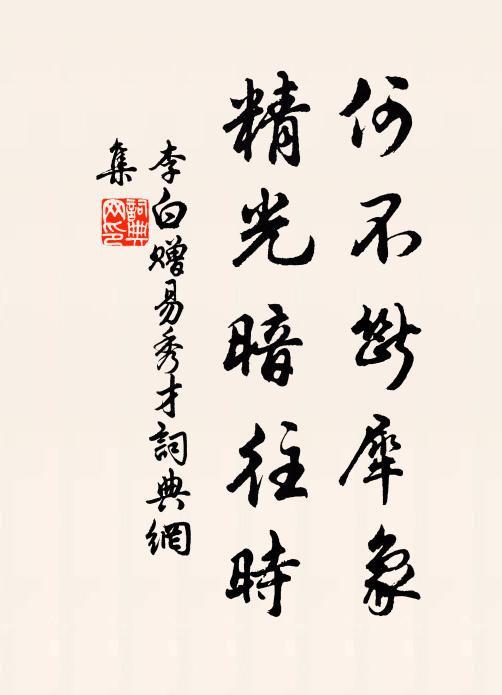 何不斷犀象
精光暗往時
李白贈易秀才詞典網
集
詞典
网印